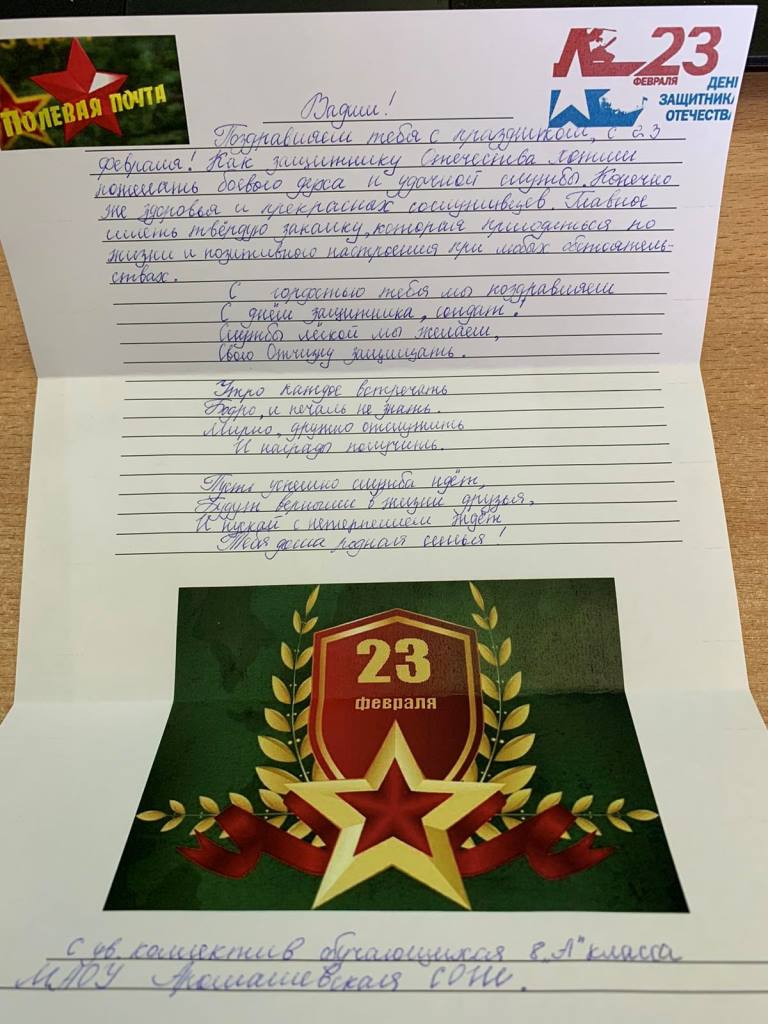 ПОЛЕВАЯ ПОЧТА
23
ФЕВРАЛЯ
ДЕНЬ
ЗАЩИТНИКА
ОТЕЧЕСТВА
Вадим!
Поздравляем тебя с праздником, с 23
февраля! Как защитнику Отечества хотим
пожелать боевого духа и удачной службы. Конечно
же здоровья и прекрасных сослуживцев. Главное
иметь твёрдую закалку, которая пригодиться по
жизни и позитивного настроения при любых обстоятель-
ствах.
С гордостью тебя мы поздравляем
С днём защитника, солдат!
Службы лёгкой мы желаем,
Свою Отчизну защищать.
Утро каждое встречать
Бодро, и печаль не знать.
Мирно, дружно отслужить
И награды получить.
Пусть успешно служба идёт,
Будут верными в жизни друзья,
И пускай с нетерпением ждёт
Тебя дома родная семья!
23
февраля
С ув. коллектив обучающихся 8 „А" класса
МАОУ Аромашевская СОШ.